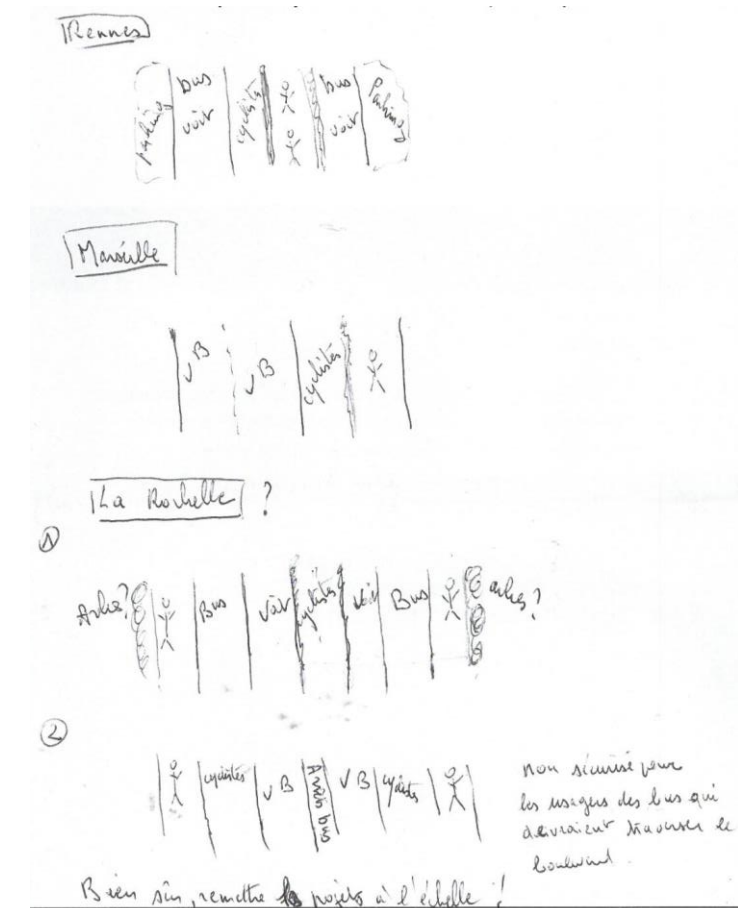 Rennes
parking bus voit cyclistes bus voit Parking
Marseille
V B V B cyclistes
La Rochelle ?
1
Arbres? Bus voit cyclistes voit Bus arbres?
2
cyclistes V B Arrêts bus V B cyclistes
non sécurisé pour
les usagers des bus qui
devraient traverser le
boulevard.
Bien sûr, remettre les projets à l'échelle !